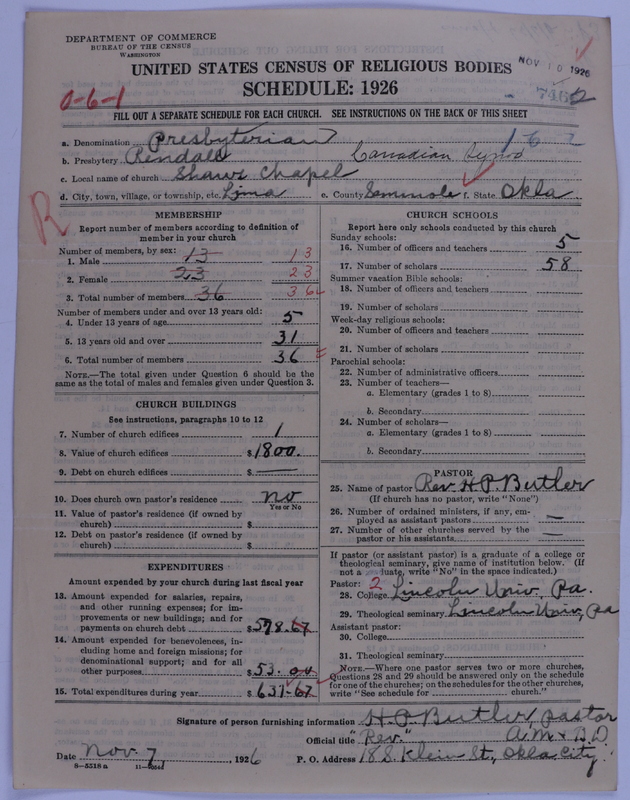 DEPARTMENT OF COMMERCE
BUREAU OF THE CENSUS
WASHINGTON
NOV 10 1926
UNITED STATES CENSUS OF RELIGIOUS BODIES
SCHEDULE: 1926
0-6-1
FILL OUT A SEPARATE SCHEDULE FOR EACH CHURCH. SEE INSTRUCTIONS ON THE BACK OF THIS SHEET
a. Denomination Presbyterian 162
b. Presbytery Rendall Canadian Synod
c. Local name of church Shaws Chapel
d. City, town, village, or township, etc. Lima e. County Seminole f. State Okla
R
MEMBERSHIP
Report number of members according to definition of member in your church
Number of members, by sex:
1. Male 13 13
2. Female 23 23
3. Total number of members 36 36
Number of members under and over 13 years old:
4. Under 13 years of age 5
5. 13 years old and over 31
6. Total number of members 36
NOTE.—The total given under Question 6 should be the same as the total of males and females given under Question 3.
CHURCH BUILDINGS
See instructions, paragraphs 10 to 12
7. Number of church edifices 1
8. Value of church edifices $1800.
9. Debt on church edifices $ —
10. Does church own pastor's residence no
Yes or No
11. Value of pastor's residence (if owned by church) $
12. Debt on pastor's residence (if owned by church) $
EXPENDITURES
Amount expended by your church during last fiscal year
13. Amount expended for salaries, repairs, and other running expenses; for improvements or new buildings; and for payments on church debt $578.67
14. Amount expended for benevolences, including home and foreign missions; for denominational support; and for all other purposes $53.00
15. Total expenditures during year $631.67
CHURCH SCHOOLS
Report here only schools conducted by this church
Sunday schools:
16. Number of officers and teachers 5
17. Number of scholars 58
Summer vacation Bible schools:
18. Number of officers and teachers
19. Number of scholars
Week-day religious schools:
20. Number of officers and teachers
21. Number of scholars
Parochial schools:
22. Number of administrative officers
23. Number of teachers—
a. Elementary (grades 1 to 8)
b. Secondary
24. Number of scholars—
a. Elementary (grades 1 to 8)
b. Secondary
PASTOR
25. Name of pastor Rev. H P. Butler
(If church has no pastor, write "None")
26. Number of ordained ministers, if any, employed as assistant pastors —
27. Number of other churches served by the pastor or his assistants —
If pastor (or assistant pastor) is a graduate of a college or theological seminary, give name of institution below. (If not a graduate, write "No" in the space indicated.)
Pastor: 2
28. College Lincoln Univ, Pa.
29. Theological seminary Lincoln Univ, Pa
Assistant pastor:
30. College
31. Theological seminary
NOTE.—Where one pastor serves two or more churches, Questions 28 and 29 should be answered only on the schedule for one of the churches; on the schedules for the other churches, write "See schedule for church."
Signature of person furnishing information H. P. Butler, pastor
Official title "Rev." A.M & B.D
Date Nov. 7, 1926 P. O. Address 18 S. Klein St., Okla city.
8-5318 a